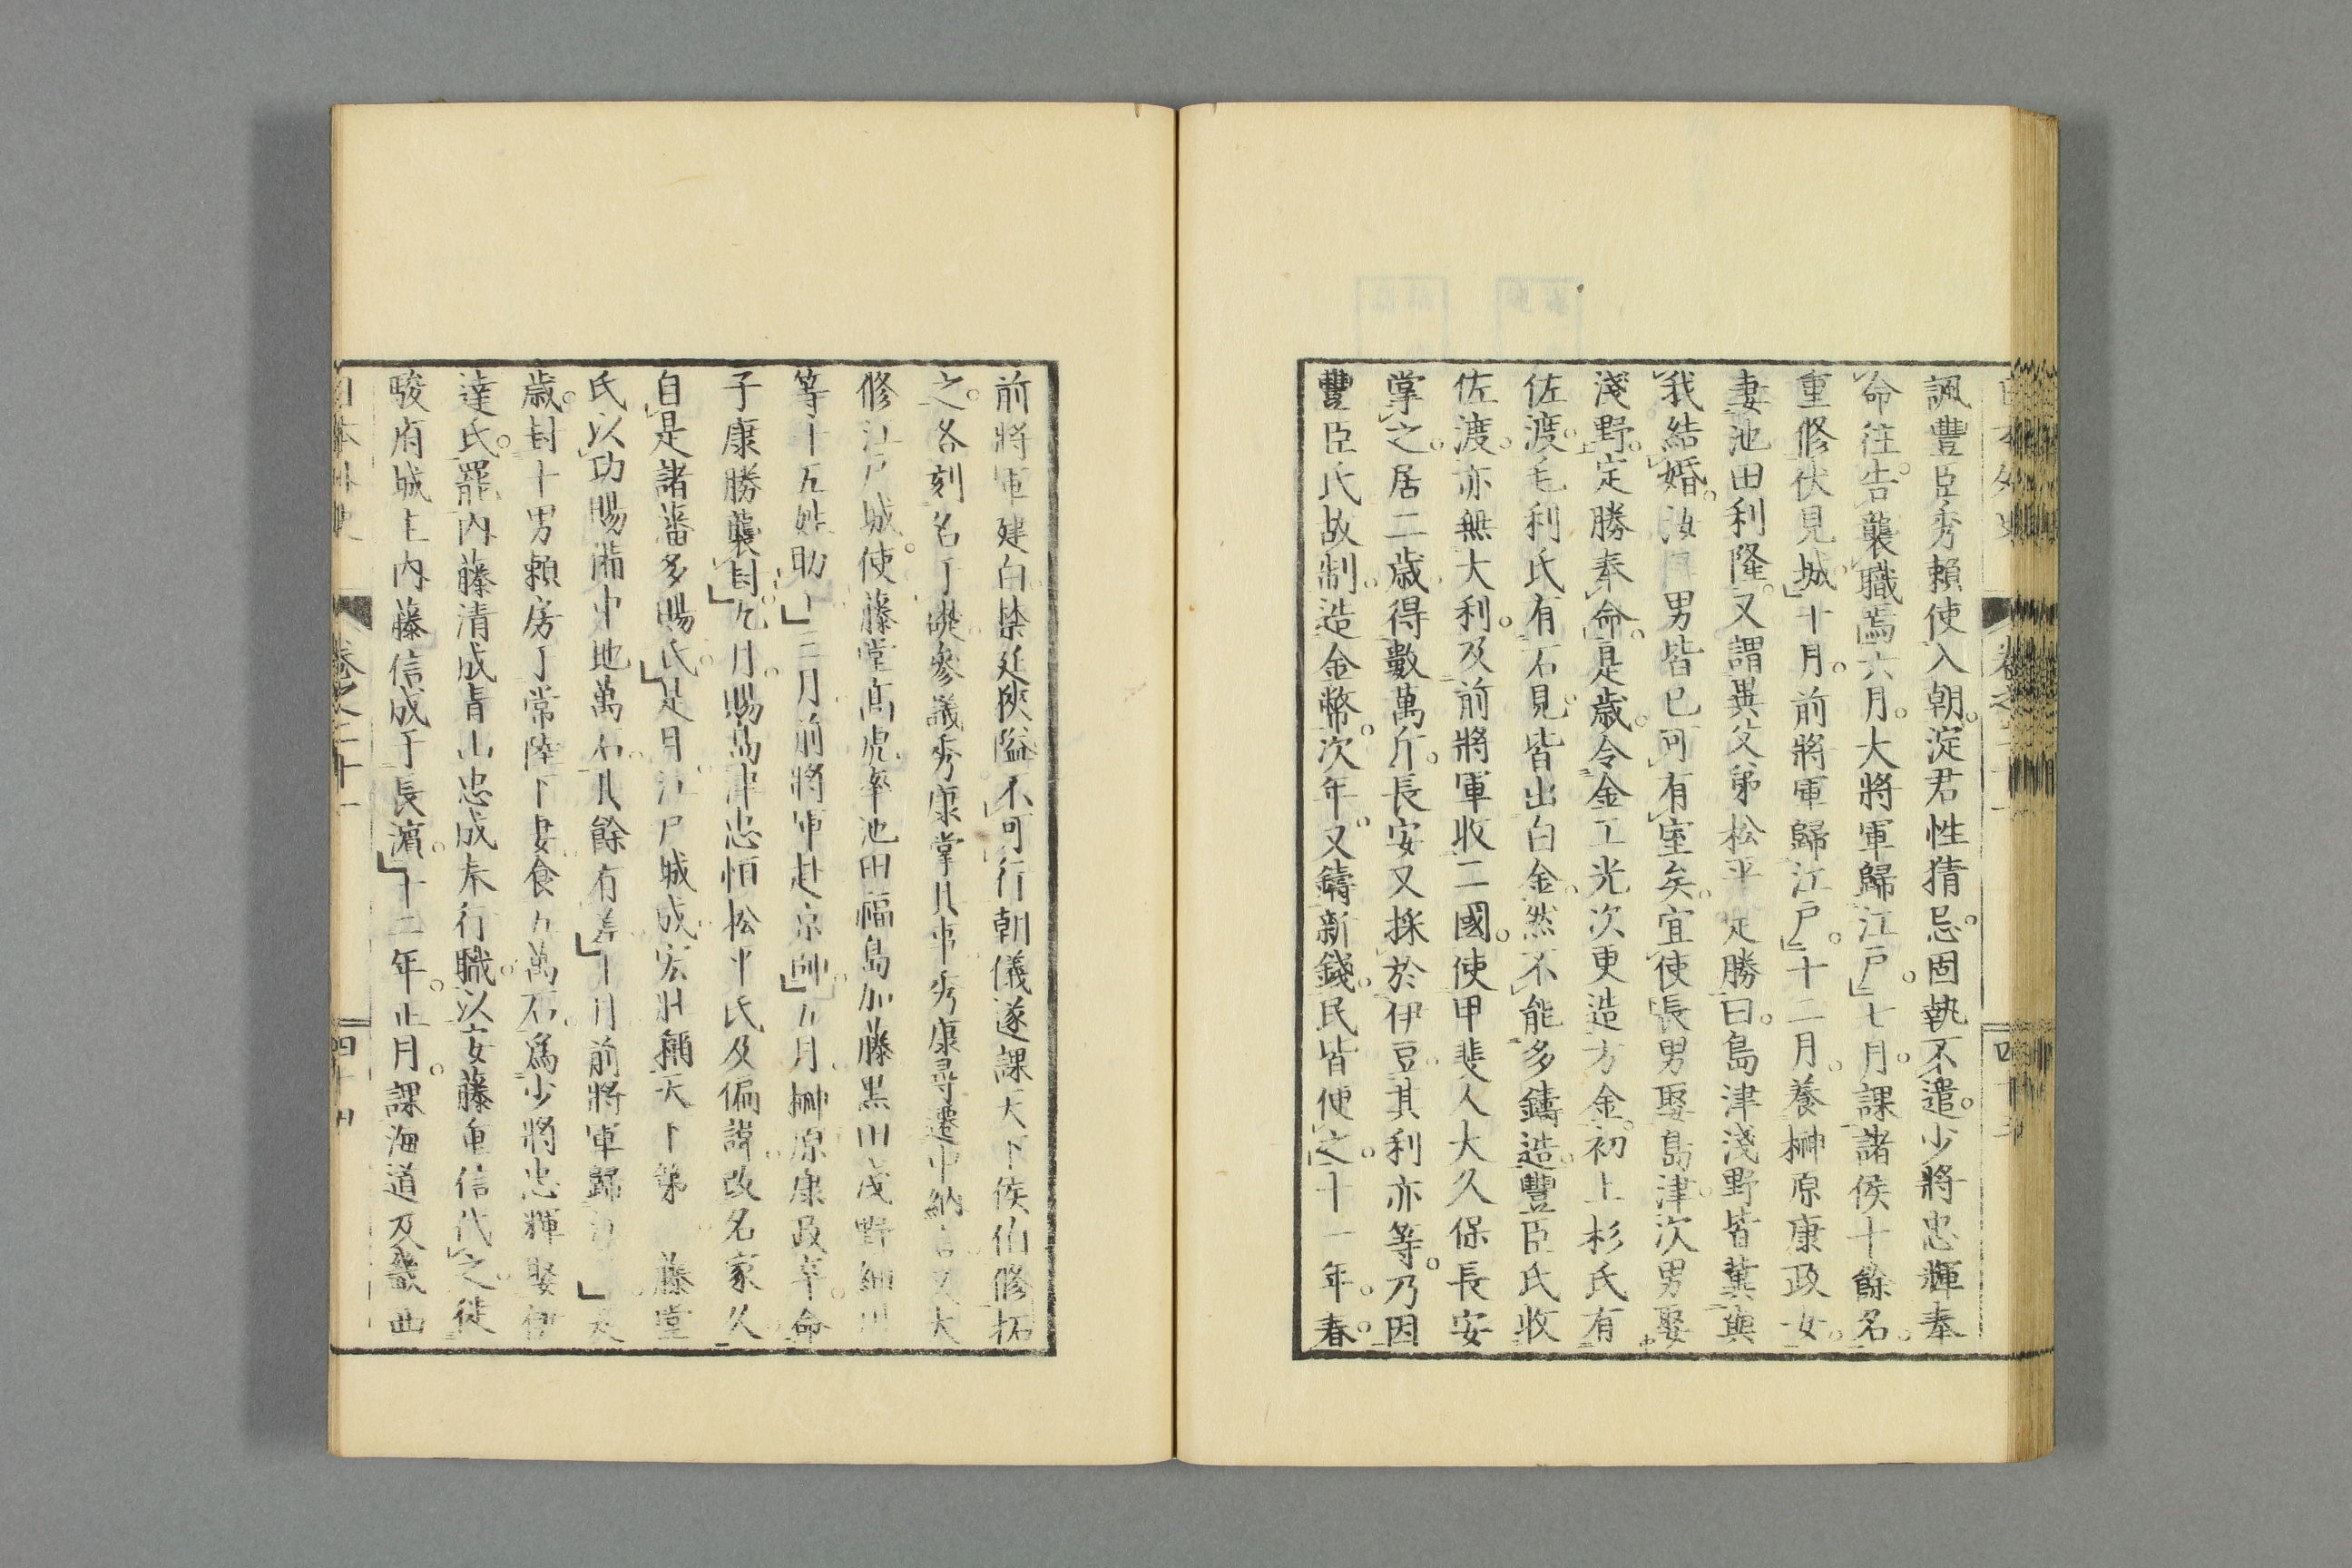 日本外史 卷之二十一 四十
諷豐臣秀賴使入朝。淀君性猜忌。固執不遣。少將忠輝奉
命往告。襲職焉」六月。大將軍歸江戸。」七月。課諸侯十餘名。
重修伏見城。」十月。前將軍歸江戸。」十二月。養榊原康政女。
妻池田利隆。又謂異父弟松平定勝曰。島津淺野皆冀與
我結婚。汝 男皆已可有室矣。宜使長男娶島津。次男娶
淺野。定勝奉命。是歲。令金工光次更造方金。初上杉氏有
佐渡。毛利氏有石見。皆出白金。然不能多鑄造。豐臣氏收
佐渡。亦無大利。及前將軍收二國。使甲斐人大久保長安
掌之。居二歲。得數萬斤。長安又採於伊豆。其利亦等。乃因
豐臣氏故制。造金幣。次年。又鑄新錢。民皆便之。十一年。春。
前將軍建白禁廷陜隘。不可行朝儀。遂課天下侯伯修拓
之。各刻名于礎。參議秀康掌其事。秀康尋遷中納言。又大
修江戸城。使藤堂高虎率池田福島加藤黑田淺野細川
等十五姓助 」三月。前將軍赴京師」五月。榊原康政卒。命
子康勝襲封」九月。賜島津忠恒松平氏及偏諱。改名家久。
自是諸藩多賜氏。」是月。江戸城成。宏壯稱天下第 。藤堂
氏以功賜備中地萬石。其餘有差」十月。前將軍歸江 」是
歲。封十男賴房于常陸下妻。食五萬石。爲少將。忠輝娶伊
達氏。罷內藤清成青山忠成奉行職。以安藤重信代之。徙
駿府城主內藤信成于長濱。」十二年。正月。課海道及畿西
日本外史 卷之二十一 四十四